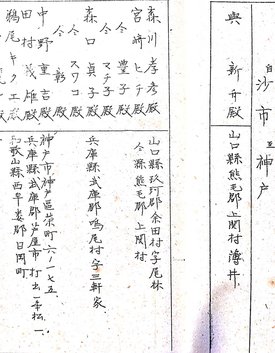 自沙市至神戸
與 新舟殿 山口縣熊毛郡上関村薄井
森川孝彦殿 山口縣玖珂郡余田村字尾林
宮崎ヒデ殿 仝縣熊毛郡上関村
仝 豊子殿
仝 マチ子殿
森口貞子殿 兵庫縣武庫郡鳴尾村字三軒家
仝 スワコ殿
仝 彰殿
中野重吉殿 神戸市神戸區栄町六ノ一七五
田村義雄殿 兵庫縣武庫郡芦屋市打出一本松一
鵜尾キク工殿 和歌山縣西牟婁郡日岡町